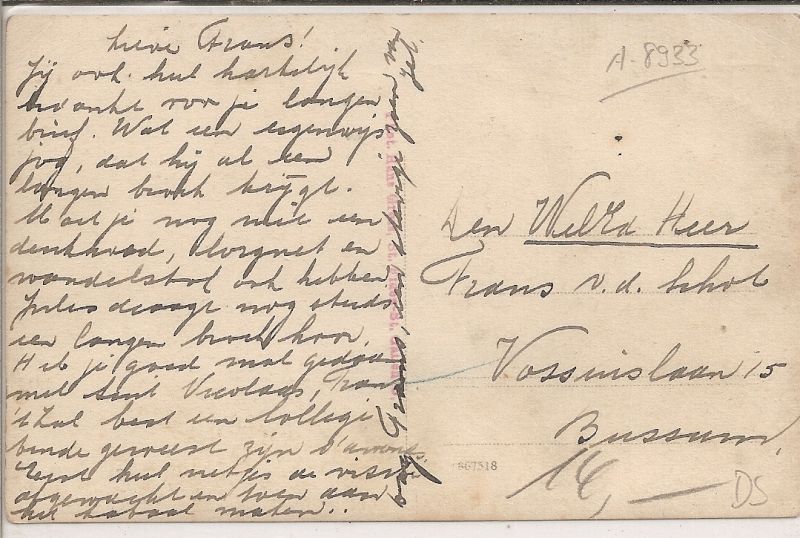 Lieve Frans!
Jij ook heel hartelijk
bedankt voor je langen
brief. Wat een eigenwijs
jog, dat hij al een
langen broek krijgt.
Moet je nog niet een
denkhoed, lorgnet en
wandelstok ook hebben
Jules draagt nog steeds
een langen broek hoor.
Heb je goed mal gedaan
met Sint Nicolaas, Frans
't Zal best een lollige
bende geweest zijn s'avonds.
Eerst heel netjes de visite
afgewacht en toen aan
het kabaal maken..
A-8933
Den WelEd Heer
Frans v.d. Schot
Vossiuslaan 15
Bussum
867518
14,—
DS